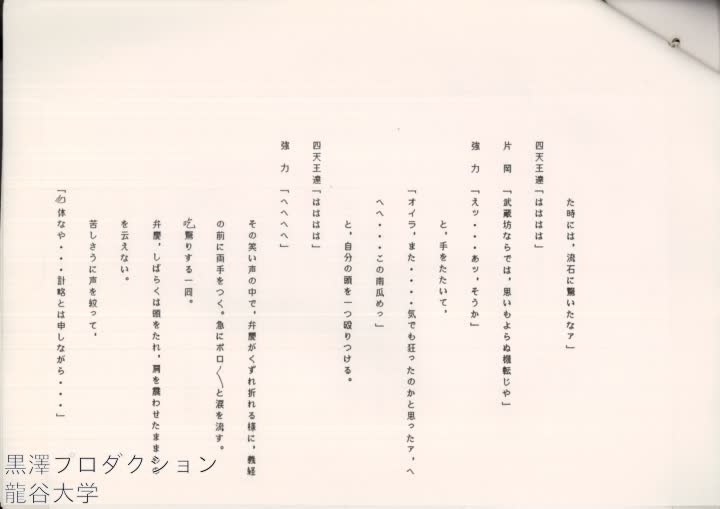 た時には、流石に驚いたなァ」
四天王達「はははは」
片　岡　「武蔵坊ならでは、思いもよらぬ機転じゃ」
強　力　「えッ・・・あッ、そうか」
と、手をたたいて、
「オイラ、また・・・・気でも狂ったのかと思ったァ、へ
へへ・・・この南瓜めっ」
と、自分の頭を一つ殴りつける。
四天王達「はははは」
強　力　「へへへへ」
その笑い声の中で、弁慶がくずれ折れる様に、義経
の前に両手をつく。急にボロ〱と涙を流す。
吃驚りする一同。
弁慶、しばらくは頭をたれ、肩を震わせたまま
を云えない。
苦しさうに声を絞って、
「勿体なや・・・計略とは申しながら・・・」
黒澤プロダクション
龍谷大学